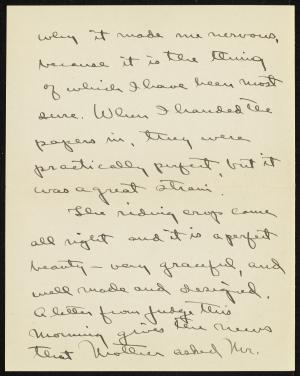 why it made me nervous,
because it is the thing
of which I have been most
sure. When I handed the
papers in, they were
practically perfect, but it
was a great strain.
The riding crop came
all right and it is a perfect
beauty – very graceful, and
well made and designed.
A letter from Judge this
morning gives the news
that Mother asked Mr.